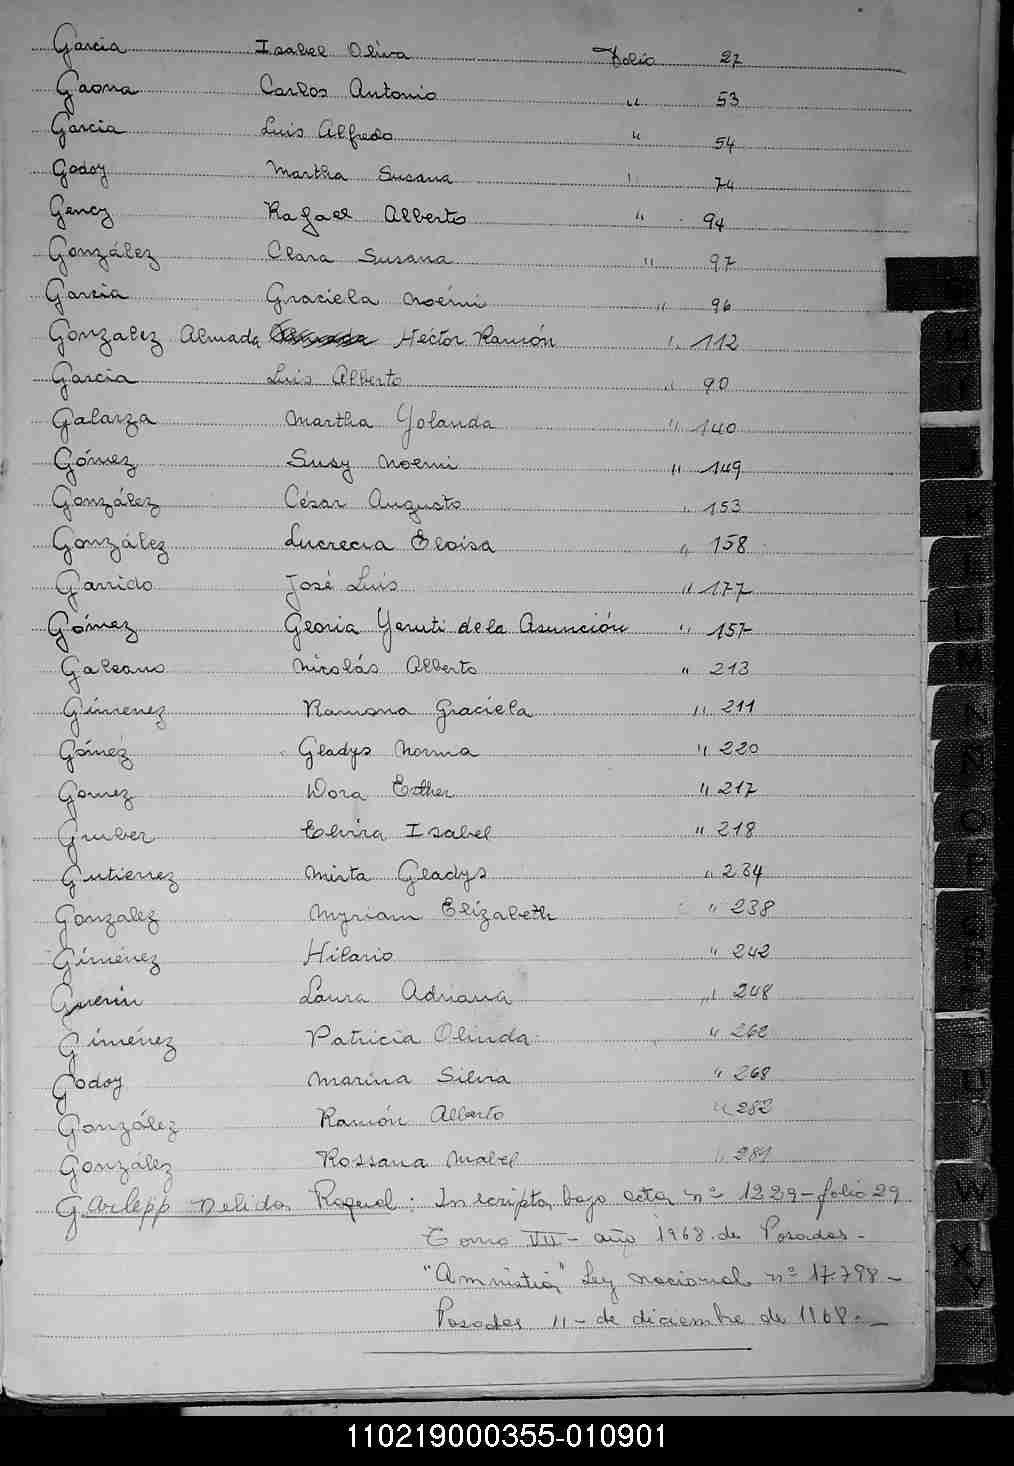 Garcia Isabel Oliva Folio 27
Gaona Carlos Antonio " 53
Garcia Luis Alfredo " 54
Godoy Martha Susana " 74
Gency Rafael Alberto " 94
González Clara Susana " 97
Garcia Graciela Noémi " 96
Gonzalez Almada Héctor Ramón " 112
Garcia Luis Alberto " 90
Galarza Martha Yolanda " 140
Gómez Susy Noemi " 149
González César Augusto " 153
González Lucrecia Eloisa " 158
Garrido José Luis " 177
Gómez Gloria Yeruti de la Asunción " 157
Galeano Nicolás Alberto " 213
Gimenez Ramona Graciela " 211
Gómez Gladys Norma " 220
Gomez Dora Esther " 217
Gruber Elvira Isabel " 218
Gutierrez Mirta Gladys " 234
Gonzalez Myriam Elizabeth " 238
Giménez Hilario " 242
Guerin Laura Adriana " 248
Giménez Patricia Olinda " 262
Godoy Marina Silvia " 268
González Ramón Alberto " 282
González Rossana Mabel " 281
Garlepp Nelida Raquel: Inscripta bajo acta nº 1229-folio 29
Tomo VII - año 1968 de Posadas-
"Amnistia" Ley nacional nº 17.798-
Posadas 11-de diciembre de 1168.-
M
N
Ñ
O
P
W
X
Y
110219000355-010901